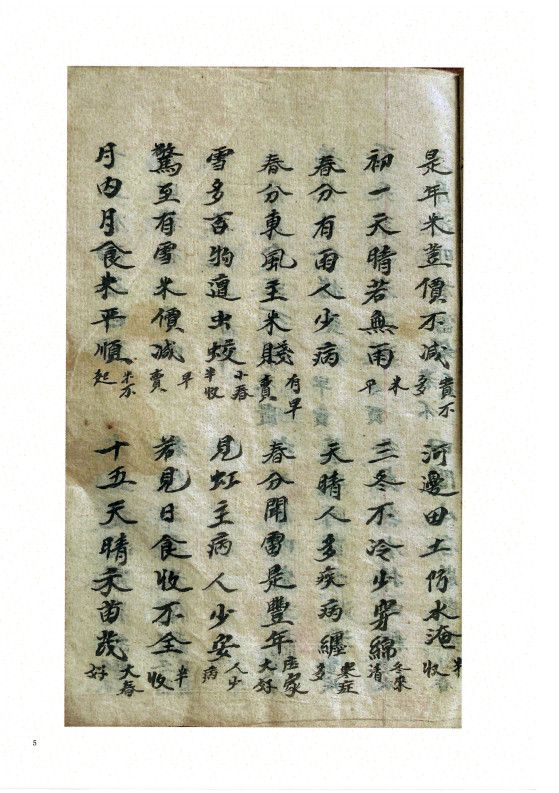 是年米荳價不减貴不多 河邊田土防水淹半收
初一天晴若無雨米平 三冬不冷少穿綿冬來清
春分有雨人少病 天晴人多疾病纏寒症多
春分東風至米賤有早賣 春分聞雷是豐年庄家大好
雪多百物遭虫蛟小春半收 見虹主病人少安人少病
驚至有雪米價减早賣 若見日食收不全半收
月内月食米平順米不起 十五天晴禾苗茂大春好
5